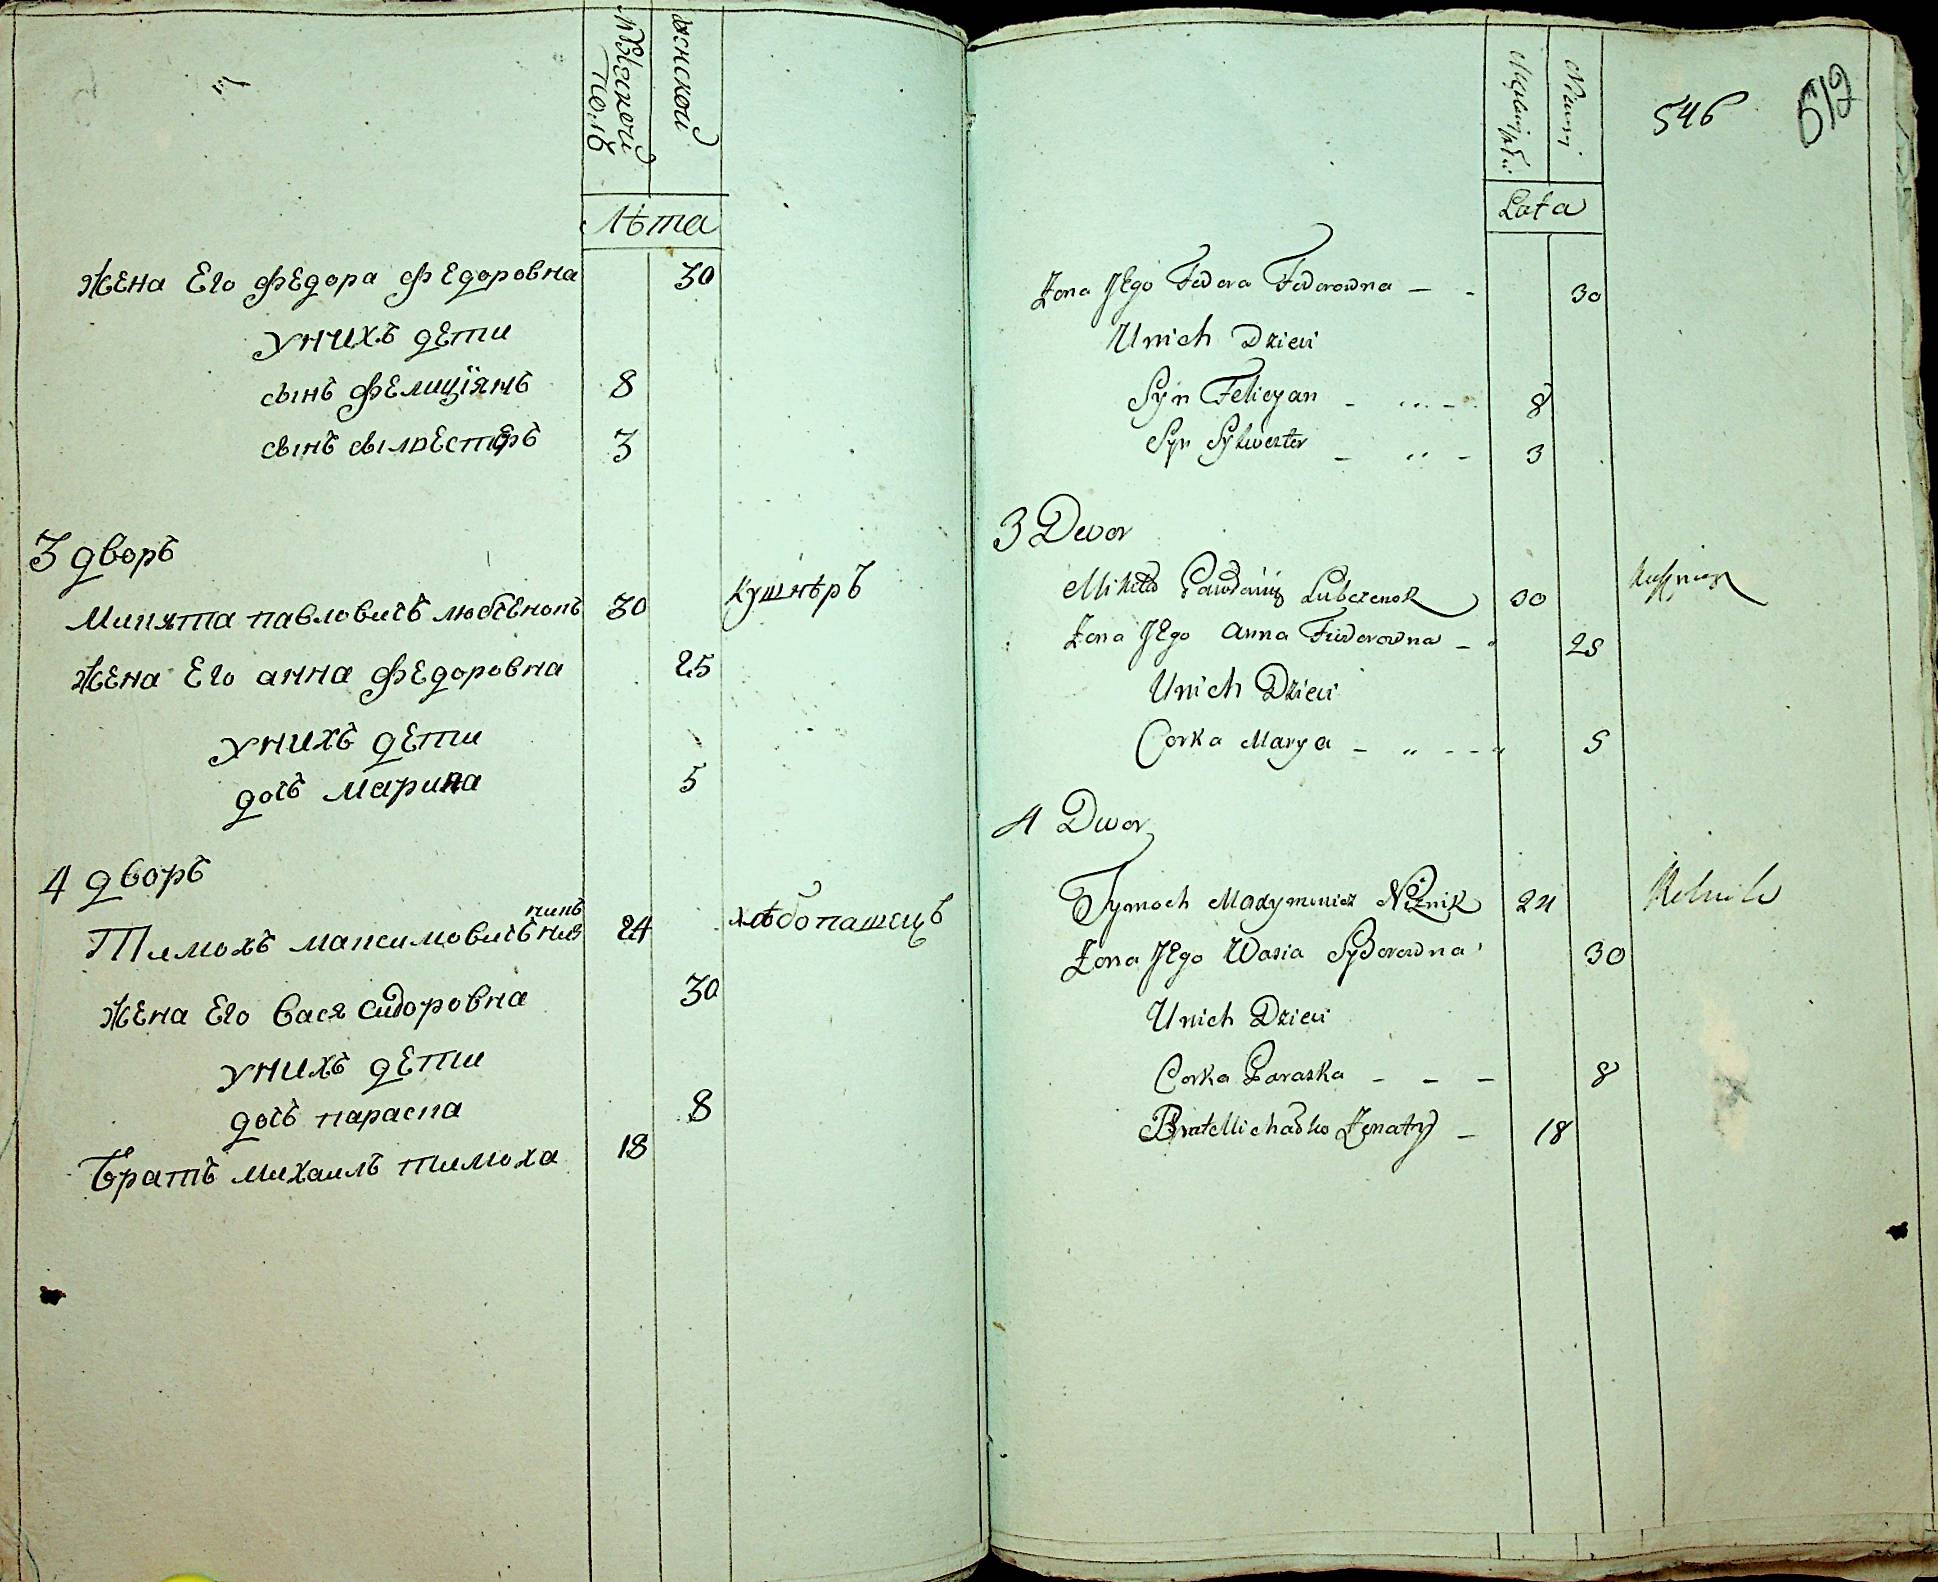 мужеской
Полъ
женской
Лѣта
Жена Его Федора Федоровна 30
У нихъ дети
сынъ Фелиціянъ 8
сынъ сылвестеръ 3
3 дворъ
Микита павловичъ любченокъ 30 кушнѣръ
Жена Его анна Федоровна 25
У нихъ дети
дочь Марина 5
4 дворъ
Тимохъ максимовичъ 24 хлѣбопашецъ
Жена Его Вася Сидоровна 30
У нихъ дети
дочь параска 8
Братъ михаилъ тимоха 18
546
512
Lata
Żona JEgo Fedora Fedorowna 30
Unich Dzieci
Syn Felicyan 8
Syn Sylwester 3
3 Dwor
Mikita Pawłowicz Lubczenok 30 Kuśnierz
Żona JEgo Anna Fiedorowna 25
Unich Dzieci
Corka Marya 5
4 Dwor
Tymoch Maxymowicz Niżnik 24
Żona JEgo Wasia Sydorowna 30
Unich Dzieci
Corka Paraska 8
Brat Michałko Żonaty 18